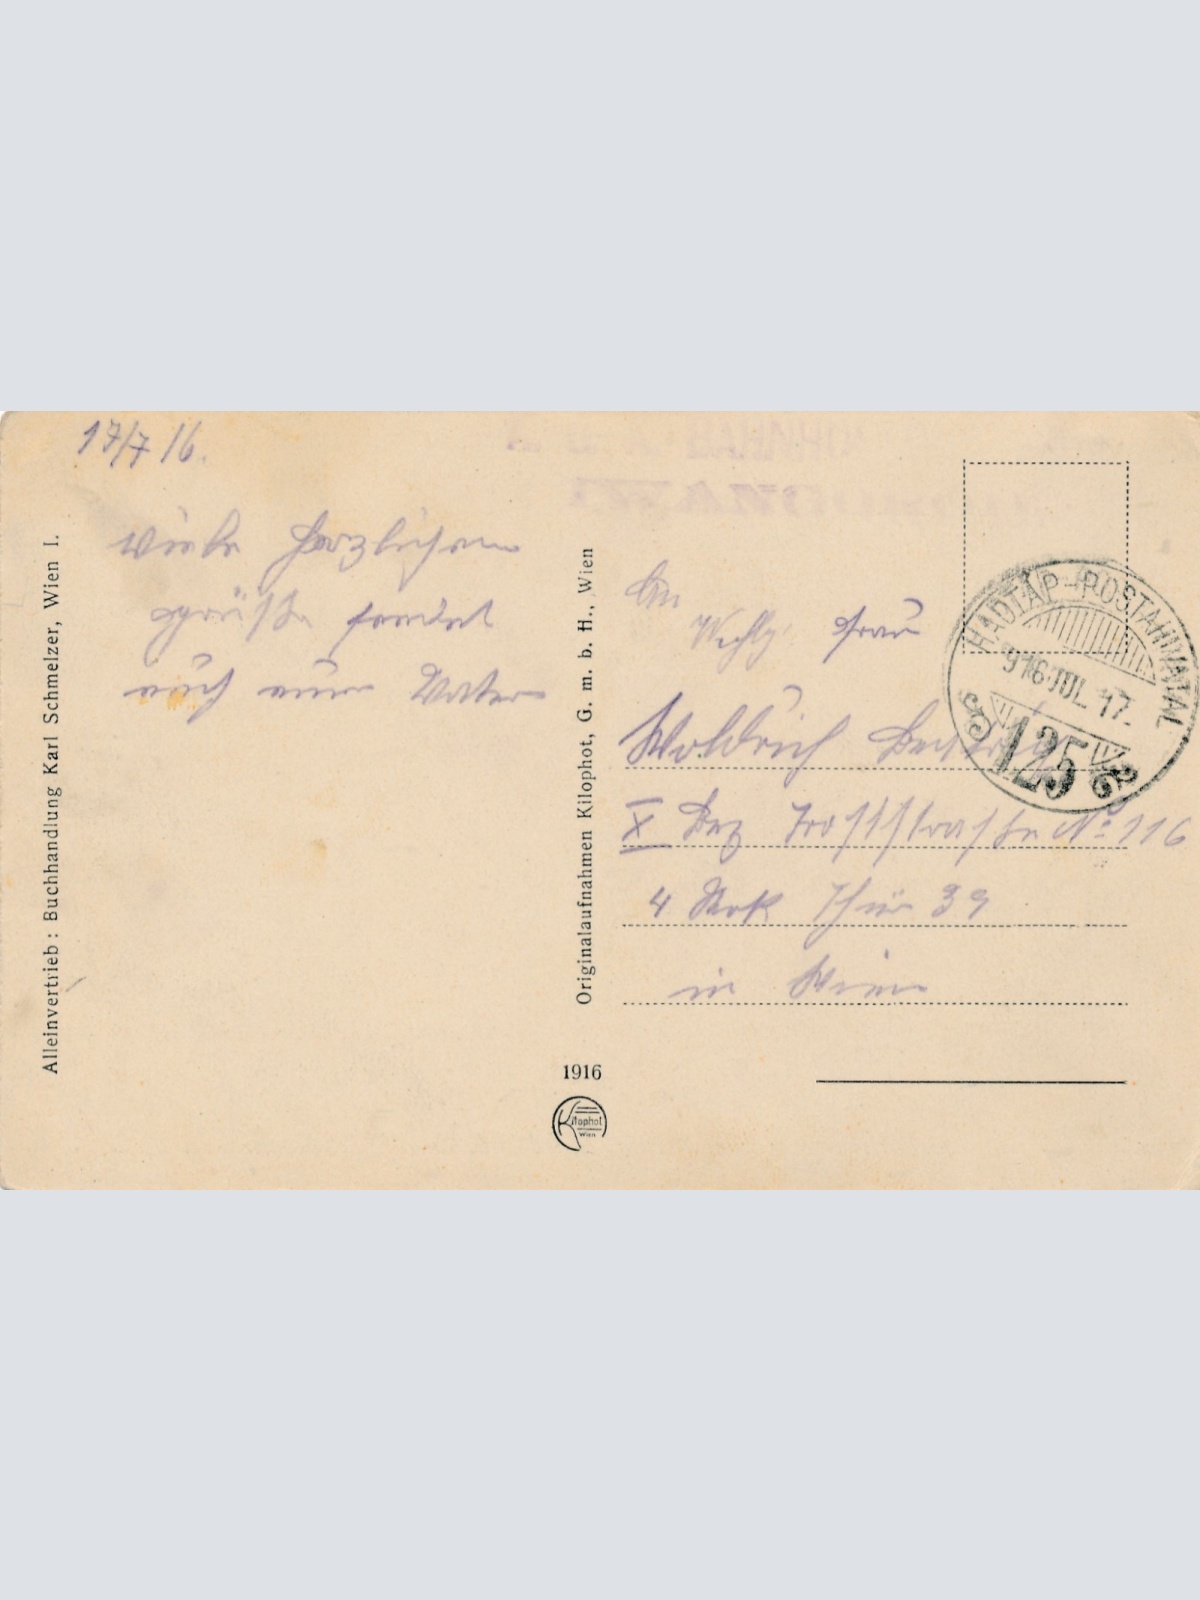 17/7 16.
Viele herzlichen
Grüße sendet
euch euer Vater
Alleinvertrieb: Buchhandlung Karl Schmelzer, Wien I.
Originalaufnahmen Kilophot, G. m. b. H., Wien
1916
Kilophot
Wien
An
Frau
Woldrich
X Bez Troststraße No 116
4 Stok Thür 39
in Wien
HADTÁP-POSTAHIVATAL
916 JUL. 17.
125